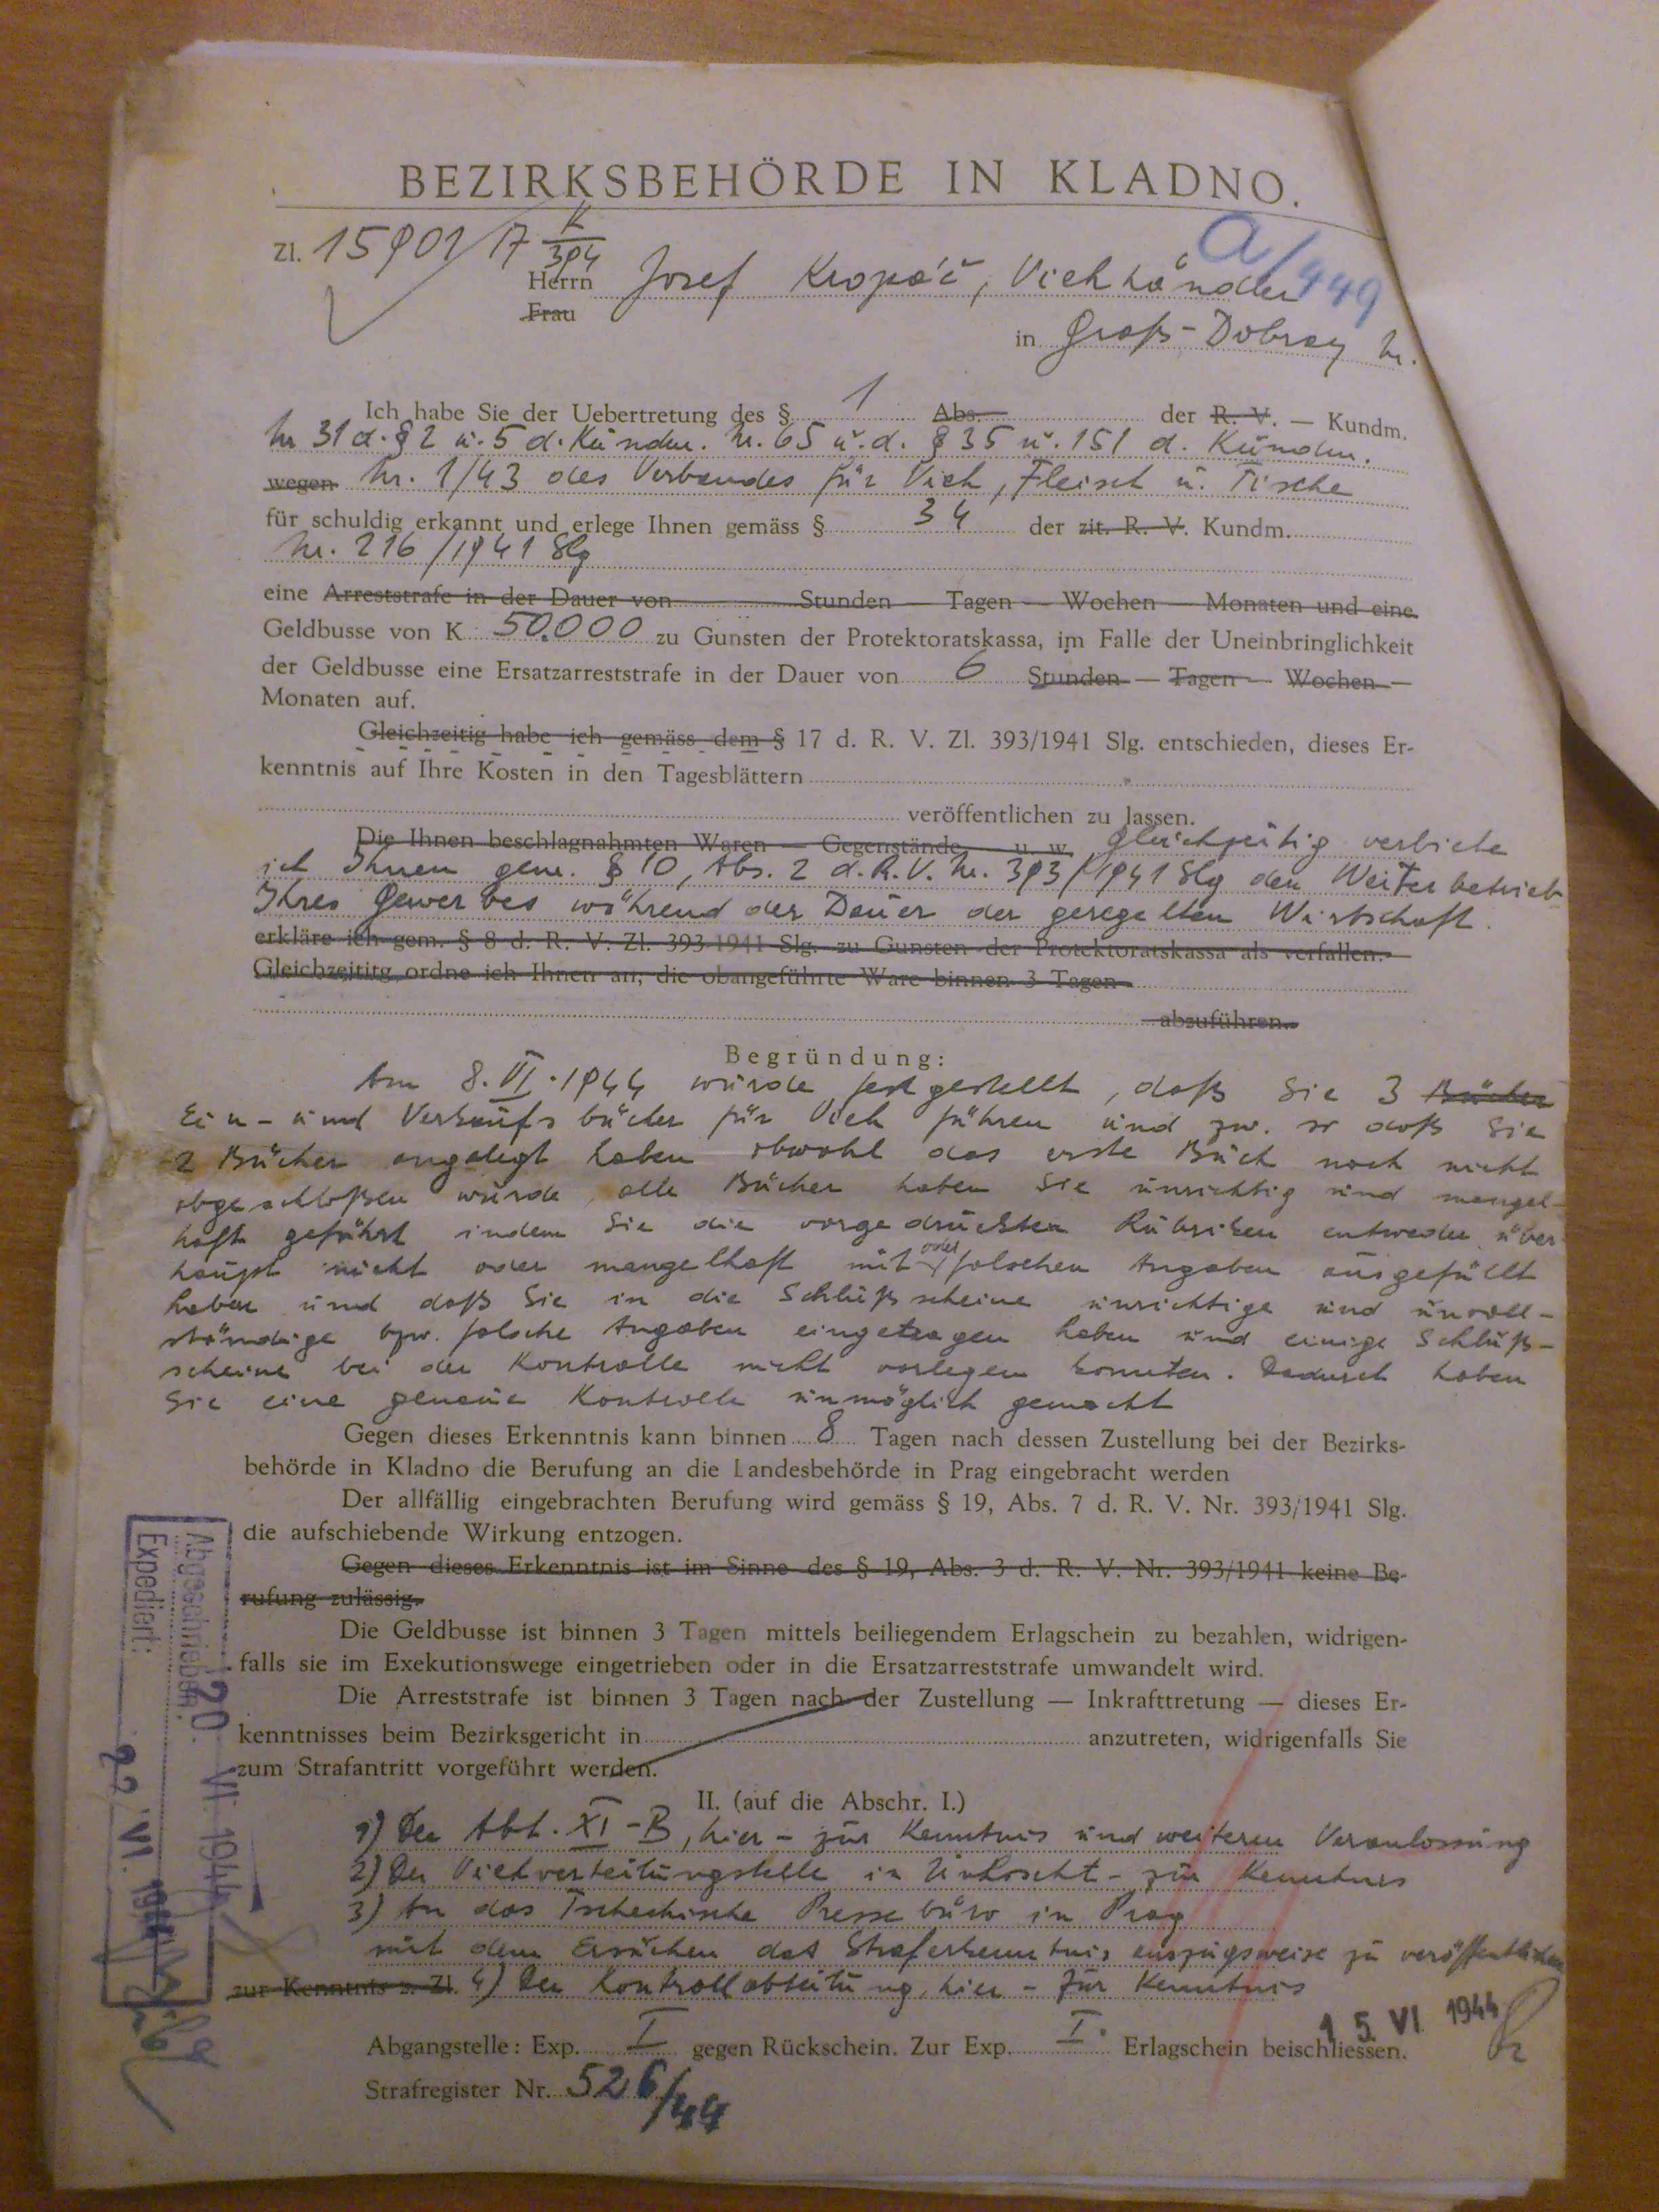 BEZIRKSBEHÖRDE IN KLADNO.
Zl. 15901/17 K/394
a/449
Herrn Josef Kropáč, Viehhändler
Frau
in Groß-Dobray Nr.
Ich habe Sie der Uebertretung des § 1 Abs. der R. V. — Kundm.
Nr 31 d. § 2 u. 5 d. Kundm. Nr. 65 u. d. § 35 u. 151 d. Kundm.
wegen Nr. 1/43 des Verbandes für Vieh, Fleisch u. Fische
für schuldig erkannt und erlege Ihnen gemäss § 34 der zit. R. V. Kundm.
Nr. 216/1941 Slg
eine Arreststrafe in der Dauer von Stunden — Tagen — Wochen — Monaten und eine
Geldbusse von K 50.000 zu Gunsten der Protektoratskassa, im Falle der Uneinbringlichkeit
der Geldbusse eine Ersatzarreststrafe in der Dauer von 6 Stunden — Tagen — Wochen —
Monaten auf.
Gleichzeitig habe ich gemäss dem § 17 d. R. V. Zl. 393/1941 Slg. entschieden, dieses Er-
kenntnis auf Ihre Kosten in den Tagesblättern
veröffentlichen zu lassen.
Die Ihnen beschlagnahmten Waren — Gegenstände u. w. Gleichzeitig verbiete
ich Ihnen gem. § 10, Abs. 2 d. R. V. Nr. 393/1941 Slg den Weiterbetrieb
Ihres Gewerbes während der Dauer der geregelten Wirtschaft.
erkläre ich gem. § 8 d. R. V. Zl. 393-1941 Slg. zu Gunsten der Protektoratskassa als verfallen.
Gleichzeititg ordne ich Ihnen an, die obangeführte Ware binnen 3 Tagen
abzuführen.
Begründung:
Am 8. VI. 1944 wurde festgestellt, daß Sie 3 Bücher
Ein- und Verkaufsbücher für Vieh führen und zw. so daß Sie
2 Bücher angelegt haben obwohl das erste Buch noch nicht
abgeschloßen wurde, alle Bücher haben Sie unrichtig und mangel-
haft geführt indem Sie die vorgedruckten Rubriken entweder über
haupt nicht oder mangelhaft mit oder falschen Angaben ausgefüllt
haben und daß Sie in die Schlußscheine unrichtige und unvoll-
ständige bzw. falsche Angaben eingetragen haben und einige Schluß-
scheine bei der Kontrolle nicht vorlegen konnten. Dadurch haben
Sie eine genaue Kontrolle unmöglich gemacht
Gegen dieses Erkenntnis kann binnen 8 Tagen nach dessen Zustellung bei der Bezirks-
behörde in Kladno die Berufung an die Landesbehörde in Prag eingebracht werden
Der allfällig eingebrachten Berufung wird gemäss § 19, Abs. 7 d. R. V. Nr. 393/1941 Slg.
die aufschiebende Wirkung entzogen.
Gegen dieses Erkenntnis ist im Sinne des § 19, Abs. 3 d. R. V. Nr. 393/1941 keine Be-
rufung zulässig.
Die Geldbusse ist binnen 3 Tagen mittels beiliegendem Erlagschein zu bezahlen, widrigen-
falls sie im Exekutionswege eingetrieben oder in die Ersatzarreststrafe umwandelt wird.
Die Arreststrafe ist binnen 3 Tagen nach der Zustellung — Inkrafttretung — dieses Er-
kenntnisses beim Bezirksgericht in anzutreten, widrigenfalls Sie
zum Strafantritt vorgeführt werden.
II. (auf die Abschr. I.)
1) Der Abt. XI-B, hier - zur Kenntnis und weiteren Veranlassung
2) Der Viehverteilungstelle in Unhoscht - zur Kenntnis
3) An das Tschechische Pressebüro in Prag
mit dem Ersuchen das Straferkenntnis auszugsweise zu veröffentlichen
zur Kenntnis z. Zl. 4) Der Kontrollabteilung, hier - zur Kenntnis
15. VI. 1944
Abgangstelle: Exp. I gegen Rückschein. Zur Exp. I. Erlagschein beischliessen.
Strafregister Nr. 526/44
Abgeschrieben: 20. VI. 1944
Expediert: 22. VI. 1944